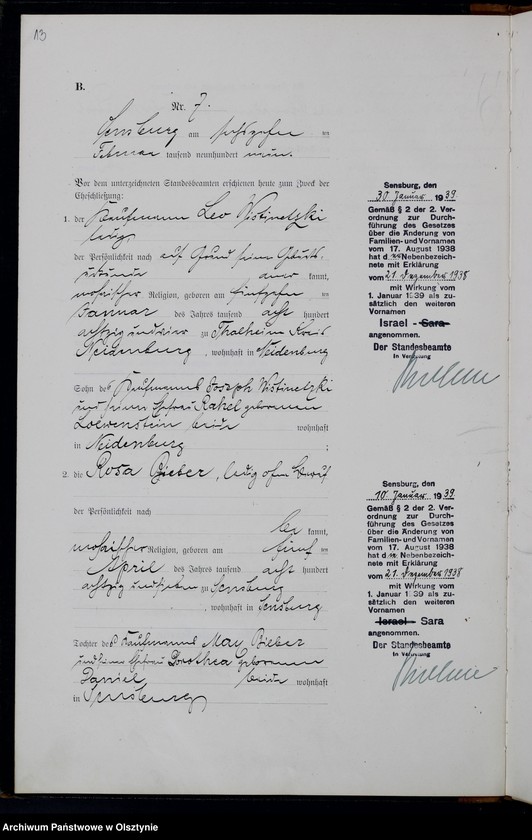 13
B.
Nr. 7.
Sensburg am sechszehnten
Februar tausend neunhundert neun.
Vor dem unterzeichneten Standesbeamten erschienen heute zum Zweck der
Eheschließung:
1. der Kaufmann Leo Wistinetzki
ledig,
der Persönlichkeit nach auf Grund seiner Geburts-
urkunde aner kannt,
mosaischer Religion, geboren am fünfzehnten
Januar des Jahres tausend acht hundert
achtzig und vier zu Thalheim Kreis
Neidenburg, wohnhaft in Neidenburg
Sohn des Kaufmanns Joseph Wistinetzki
und seiner Ehefrau Rahel geborenen
Loewenstein beide wohnhaft
in Neidenburg ;
2. die Rosa Bieber, ledig ohne Beruf
der Persönlichkeit nach
be kannt,
mosaischer Religion, geboren am fünf ten
April des Jahres tausend acht hundert
achtzig und sieben zu Sensburg
, wohnhaft in Sensburg
Tochter des Kaufmanns Max Bieber
und seiner Ehefrau Dorothea geborenen
Daniel, beide wohnhaft
in Sensburg
Sensburg, den
30. Januar 1939
Gemäß § 2 der 2. Ver-
ordnung zur Durch-
führung des Gesetzes
über die Änderung von
Familien- und Vornamen
vom 17. August 1938
hat d. er Nebenbezeich-
nete mit Erklärung
vom 21. Dezember 1938
mit Wirkung vom
1. Januar 1939 als zu-
sätzlich den weiteren
Vornamen
Israel - Sara
angenommen.
Der Standesbeamte
In Vertretung
Sensburg, den
10. Januar 1939
Gemäß § 2 der 2. Ver-
ordnung zur Durch-
führung des Gesetzes
über die Änderung von
Familien- und Vornamen
vom 17. August 1938
hat d. ie Nebenbezeich-
nete mit Erklärung
vom 21. Dezember 1938
mit Wirkung vom
1. Januar 1939 als zu-
sätzlich den weiteren
Vornamen
Israel - Sara
angenommen.
Der Standesbeamte
In Vertretung
Archiwum Państwowe w Olsztynie